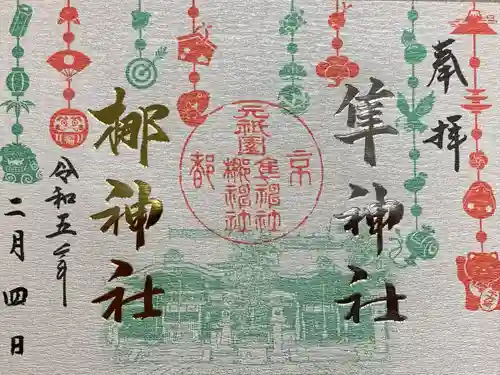 奉拝
隼神社
京都
元祇園
隼神社
梛神社
梛神社
令和五年
二月四日